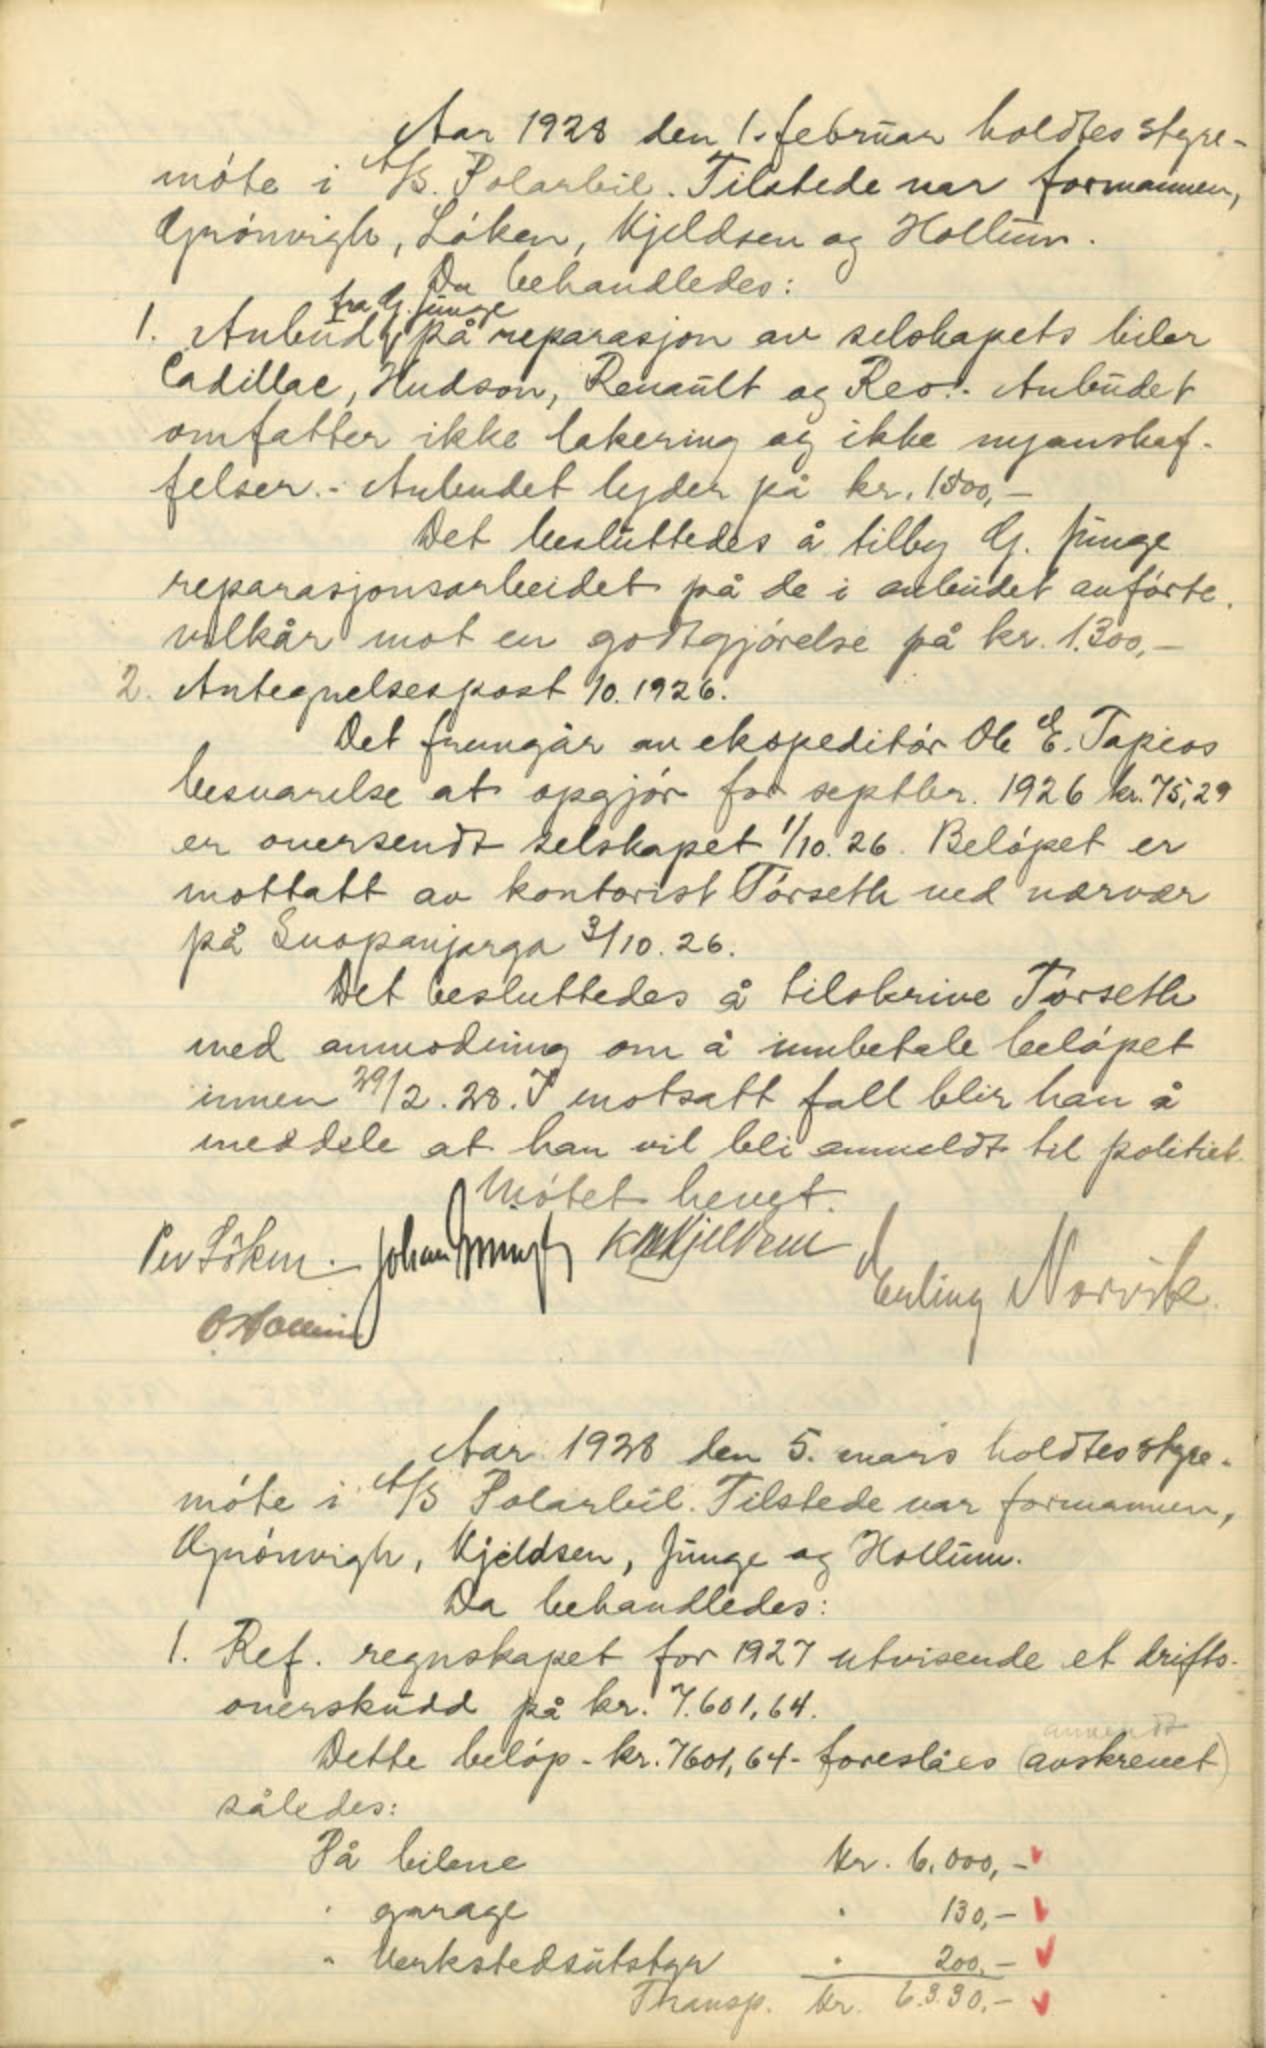 Aar 1928 den 1. februar holdtes styre-
möte i A/S. Polarbil. Tilstede var formannen,
Grönvigh, Löken, Kjeldsen og Hollum.
Da behandledes:
fra G. Junge
1. Anbud på reparasjon av selskapets biler
Cadillac, Hudson, Renault og Reo.- Anbudet
omfatter ikke lakering og ikke nyanskaf-
felser.- Anbudet lyder på kr. 1500,-
Det besluttedes å tilby G. Junge
reparasjonsarbeidet på de i anbudet anförte
vilkår mot en godtgjörelse på kr. 1.300,-
2. Antegnelsespost 10. 1926.
Det fremgår av ekspeditör Ole E. Tapios
besvarelse at opgjör for septbr. 1926 kr. 75,29
er oversendt selskapet 1/10. 26. Belöpet er
mottatt av kontorist Törseth ved nærvær
på Suopanjarga 3/10. 26.
Det besluttedes å tilskrive Törseth
med anmodning om å innbetale belöpet
innen 29/2. 28. I motsatt fall blir han å
meddele at han vil bli anmeldt til politiet.
Mötet hevet.
Per Löken. Johan Grönvigh K Kjeldsen Erling Norvik.
O Hollum
Aar 1928 den 5. mars holdtes styre-
möte i A/S Polarbil. Tilstede var formannen,
Grönvigh, Kjeldsen, Junge og Hollum.
Da behandledes:
1. Ref. regnskapet for 1927 utvisende et drifts-
overskudd på kr. 7.601,64.
anvendt
Dette belöp - kr. 7601,64 - foreslåes (avskrevet)
således:
På bilene kr. 6.000,-
" garage " 130,-
" Verkstedsutstyr " 200,-
Transp. kr. 6.330,-